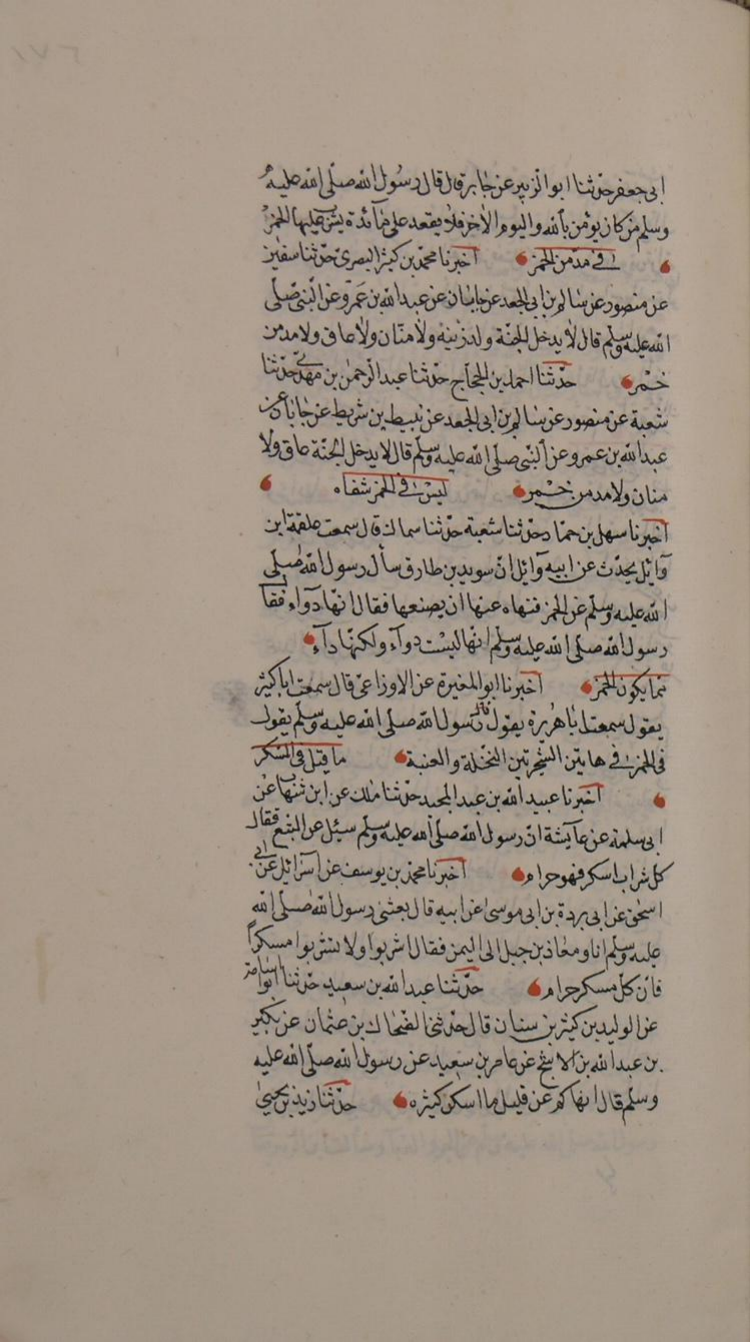 ابى جعفر حدثنا ابو الزبير عن جابر قال قال رسول الله صلى الله عليه
وسلم من كان يؤمن بالله واليوم الآخر فلا يقعد على مائدة يشرب عليها الخمر
فى مدمن الخمر اخبرنا محمد بن كثير البصرى حدثنا سفين
عن منصور عن سالم بن ابى الجعد عن جابان عن عبد الله بن عمرو عن النبى صلى
الله عليه وسلم قال لا يدخل الجنة ولد زنيه ولا منان ولا عاق ولا مدمن
خمر حدثنا احمد بن الحجاج حدثنا عبد الرحمن بن مهدى حدثنا
شعبة عن منصور عن سالم بن ابى الجعد عن نبيط بن شريط عن جابان عن
عبد الله بن عمرو عن النبى صلى الله عليه وسلم قال لا يدخل الجنة عاق ولا
منان ولا مدمن خمر ليس فى الخمر شفاء
اخبرنا سهل بن حماد حدثنا شعبة حدثنا سماك قال سمعت علقمة ابن
وآئل يحدث عن ابيه وآئل ان سويد بن طارق سأل رسول الله صلى
الله عليه وسلم عن الخمر فنهاه عنها ان يصنعها فقال انها دوآء فقا
رسول الله صلى الله عليه وسلم انها ليست دوآء ولكنها دآء
مما يكون الخمر اخبرنا ابو المغيرة عن الاوزاعى قال سمعت ابا كثير
يقول سمعت ابا هريرة يقول قال رسول الله صلى الله عليه وسلم يقول
فى الخمر فى هاتين الشجرتين النخلة والعنبة ما قيل فى المسكر
اخبرنا عبيد الله بن عبد المجيد حدثنا ملك عن ابن شهاب عن
ابى سلمة عن عآيشة ان رسول الله صلى الله عليه وسلم سئل عن البتع فقال
كل شراب اسكر فهو حرام اخبرنا محمد بن يوسف عن اسرائيل عن ابى
اسحق عن ابى بردة بن ابى موسى عن ابيه قال بعثنى رسول الله صلى الله
عليه وسلم انا ومعاذ بن جبل الى اليمن فقال اشربوا ولا تشربوا مسكرا
فان كل مسكر حرام حدثنا عبد الله بن سعيد حدثنا ابو اسامة
عن الوليد بن كثير بن سنان قال حدثنى الضحاك بن عثمان عن بكير
بن عبد الله بن الاشج عن عامر بن سعيد عن رسول الله صلى الله عليه
وسلم قال انهاكم عن قليل ما اسكر كثيره حدثنا زيد بن يحيى